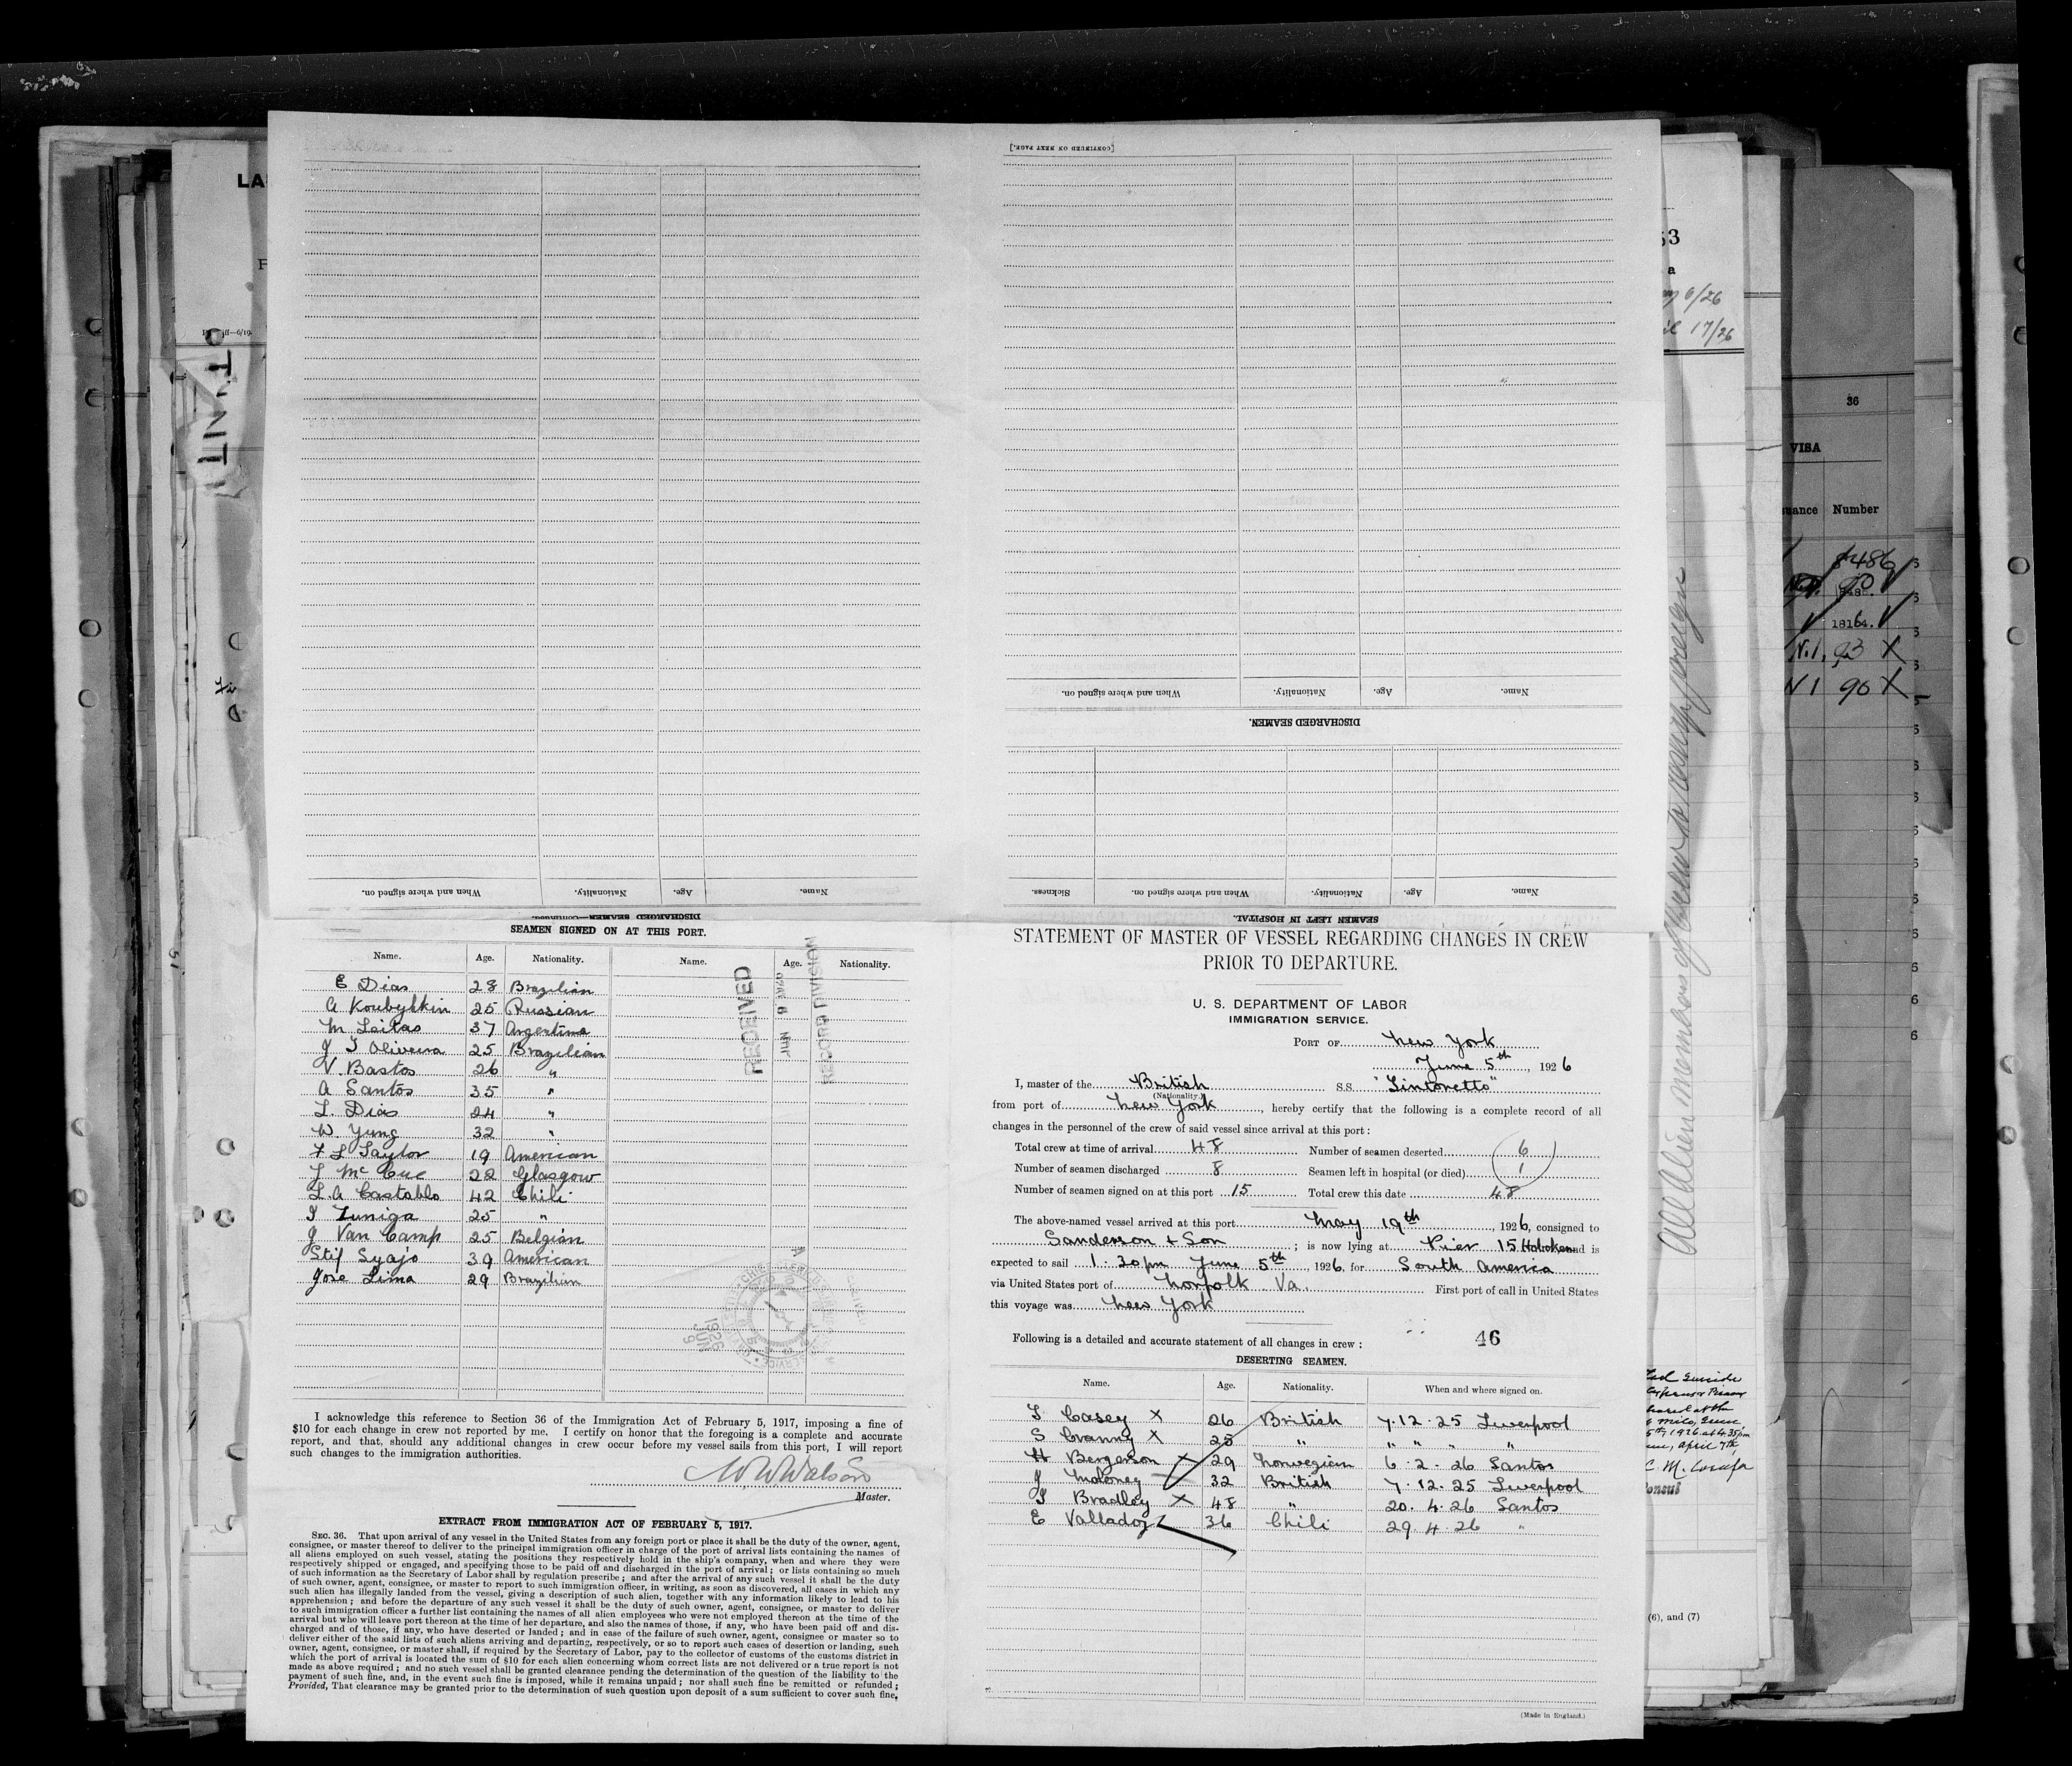 [CONTINUED ON NEXT PAGE.]
Name. Age. Nationality. When and where signed on.
DISCHARGED SEAMEN.
Name. Age. Nationality. When and where signed on. Sickness.
SEAMEN LEFT IN HOSPITAL.
Name. Age. Nationality. When and where signed on.
DISCHARGED SEAMEN—Continued.
SEAMEN SIGNED ON AT THIS PORT.
Name. Age. Nationality. Name. Age. Nationality.
E Dias 28 Brazilian
A Koubyshkin 25 Russian
M Leitas 37 Argentina
J T Oliveira 25 Brazilian
V. Bastos 26 "
A Santos 35 "
L. Dias 24 "
W. Yung 32 "
F L Taylor 19 American
J McCue 22 Glasgow
L.A Castablo 42 Chili
I Zuniga 25 "
J Van Camp 25 Belgian
Stif Syajo 39 American
Jose Lima 29 Brazilian
RECEIVED
RECORD DIVISION
1926 JUN 9
I acknowledge this reference to Section 36 of the Immigration Act of February 5, 1917, imposing a fine of
$10 for each change in crew not reported by me. I certify on honor that the foregoing is a complete and accurate
report, and that, should any additional changes in crew occur before my vessel sails from this port, I will report
such changes to the immigration authorities.
W W Watson
Master.
EXTRACT FROM IMMIGRATION ACT OF FEBRUARY 5, 1917.
SEC. 36. That upon arrival of any vessel in the United States from any foreign port or place it shall be the duty of the owner, agent,
consignee, or master thereof to deliver to the principal immigration officer in charge of the port of arrival lists containing the names of
all aliens employed on such vessel, stating the positions they respectively hold in the ship's company, when and where they were
respectively shipped or engaged, and specifying those to be paid off and discharged in the port of arrival; or lists containing so much
of such information as the Secretary of Labor shall by regulation prescribe; and after the arrival of any such vessel it shall be the duty
of such owner, agent, consignee, or master to report to such immigration officer, in writing, as soon as discovered, all cases in which any
such alien has illegally landed from the vessel, giving a description of such alien, together with any information likely to lead to his
apprehension; and before the departure of any such vessel it shall be the duty of such owner, agent, consignee, or master to deliver
to such immigration officer a further list containing the names of all alien employees who were not employed thereon at the time of the
arrival but who will leave port thereon at the time of her departure, and also the names of those, if any, who have been paid off and dis-
charged and of those, if any, who have deserted or landed; and in case of the failure of such owner, agent, consignee or master so to
deliver either of the said lists of such aliens arriving and departing, respectively, or so to report such cases of desertion or landing, such
owner, agent, consignee, or master shall, if required by the Secretary of Labor, pay to the collector of customs of the customs district in
which the port of arrival is located the sum of $10 for each alien concerning whom correct lists are not delivered or a true report is not
made as above required; and no such vessel shall be granted clearance pending the determination of the question of the liability to the
payment of such fine, and, in the event such fine is imposed, while it remains unpaid; nor shall such fine be remitted or refunded;
Provided, That clearance may be granted prior to the determination of such question upon deposit of a sum sufficient to cover such fine,
STATEMENT OF MASTER OF VESSEL REGARDING CHANGES IN CREW
PRIOR TO DEPARTURE.
U. S. DEPARTMENT OF LABOR
IMMIGRATION SERVICE.
PORT OF New York
June 5th, 1926
I, master of the British S.S. "Tintoretto"
(Nationality.)
from port of New York, hereby certify that the following is a complete record of all
changes in the personnel of the crew of said vessel since arrival at this port:
Total crew at time of arrival 48 Number of seamen deserted 6
Number of seamen discharged 8 Seamen left in hospital (or died) 1
Number of seamen signed on at this port 15 Total crew this date 48
The above-named vessel arrived at this port May 19th, 1926, consigned to
Sanderson + Son; is now lying at Pier 15 Hoboken and is
expected to sail 1.30 pm June 5th, 1926, for South America
via United States port of Norfolk Va. First port of call in United States
this voyage was New York
Following is a detailed and accurate statement of all changes in crew:
46
DESERTING SEAMEN.
Name. Age. Nationality. When and where signed on.
T Casey X 26 British 7.12.25 Liverpool
S Cranny X 25 " " " " "
H Bergerson X 29 Norwegian 6.2.26 Santos
J Moloney 32 British 7.12.25 Liverpool
J Bradley X 48 " 20.4.26 Santos
E Valladoz 36 Chili 29.4.26 "
(Made in England.)
36
VISA
Number
18164.
(6), and (7)